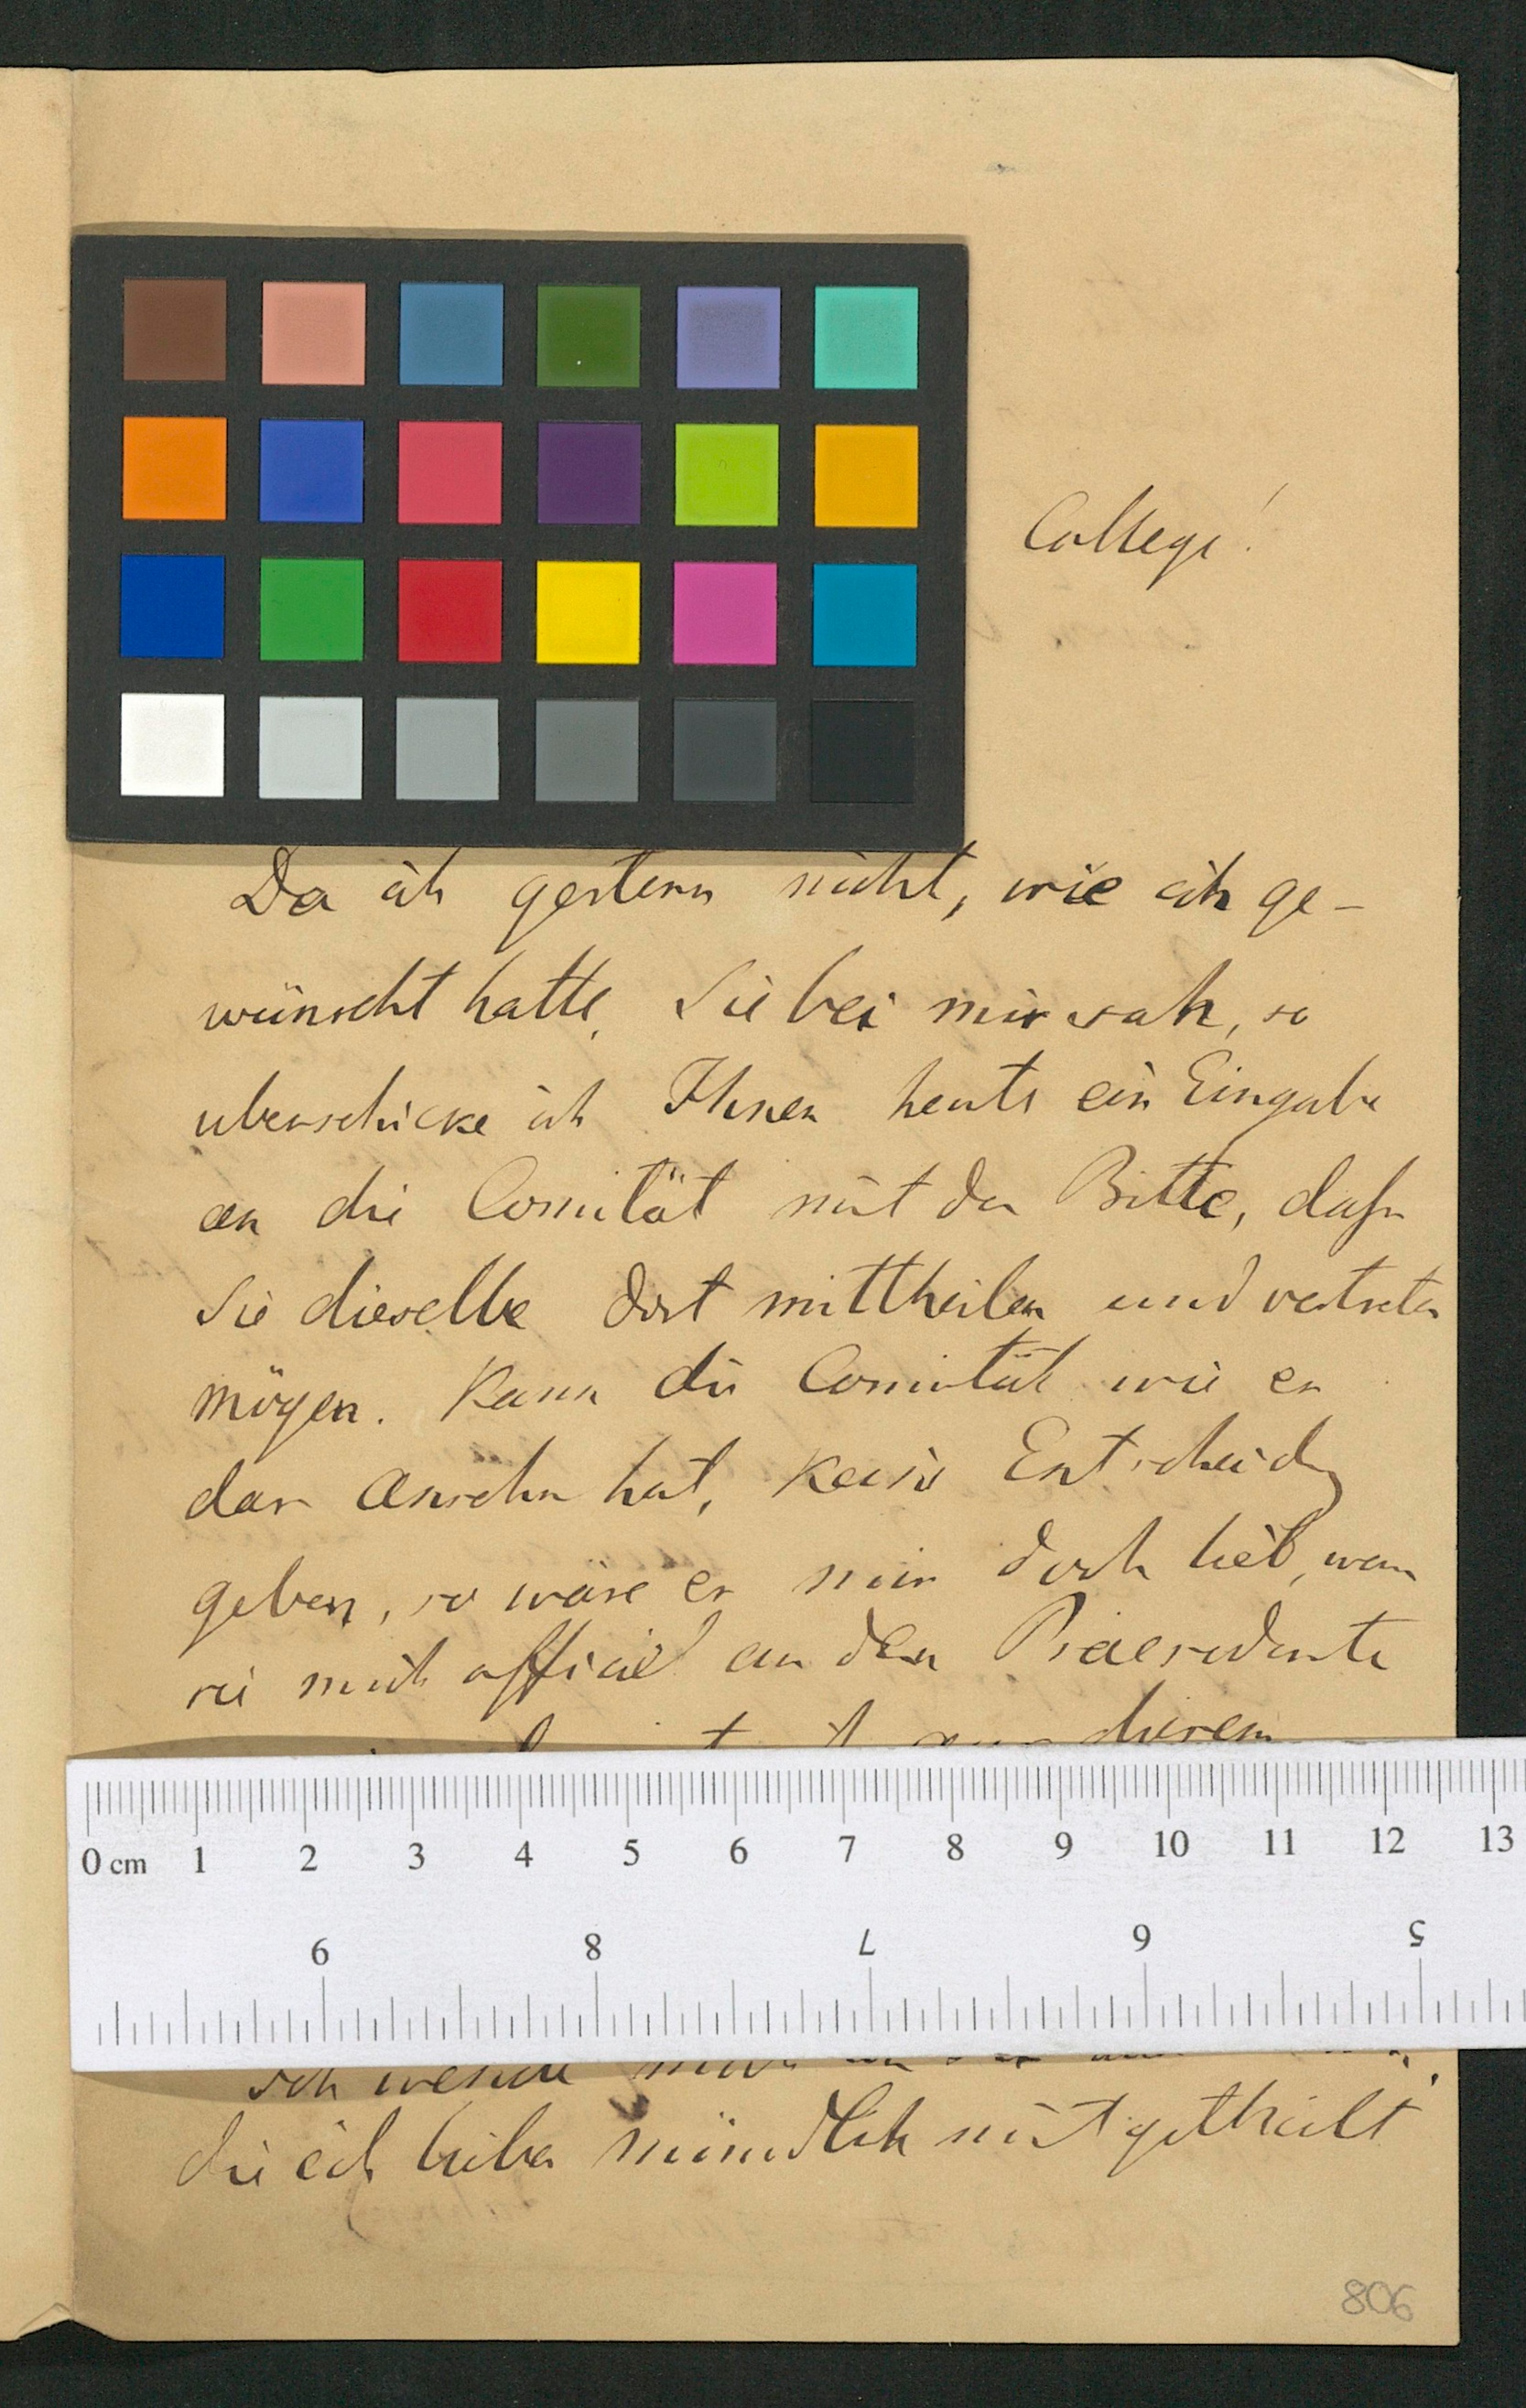 College!
Da ich gestern nicht, wie ich ge-
wünscht hatte, Sie bei mir sah, so
uberschicke ich Ihnen heute ein Eingabe
an die Comität mit der Bitte, dass
Sie dieselbe dort mittheilen und vertreten
mögen. Kann die Comität wie es
das Ansehn hat, keine Entscheidg
geben, so wäre es mir doch lieb, wenn
sie mich officiel an den Praesidente
diesem
0 cm 1 2 3 4 5 6 7 8 9 10 11 12 13
9 8 7 6 5
ich wende mich
die ich lieber mündlich mitgetheilt
806